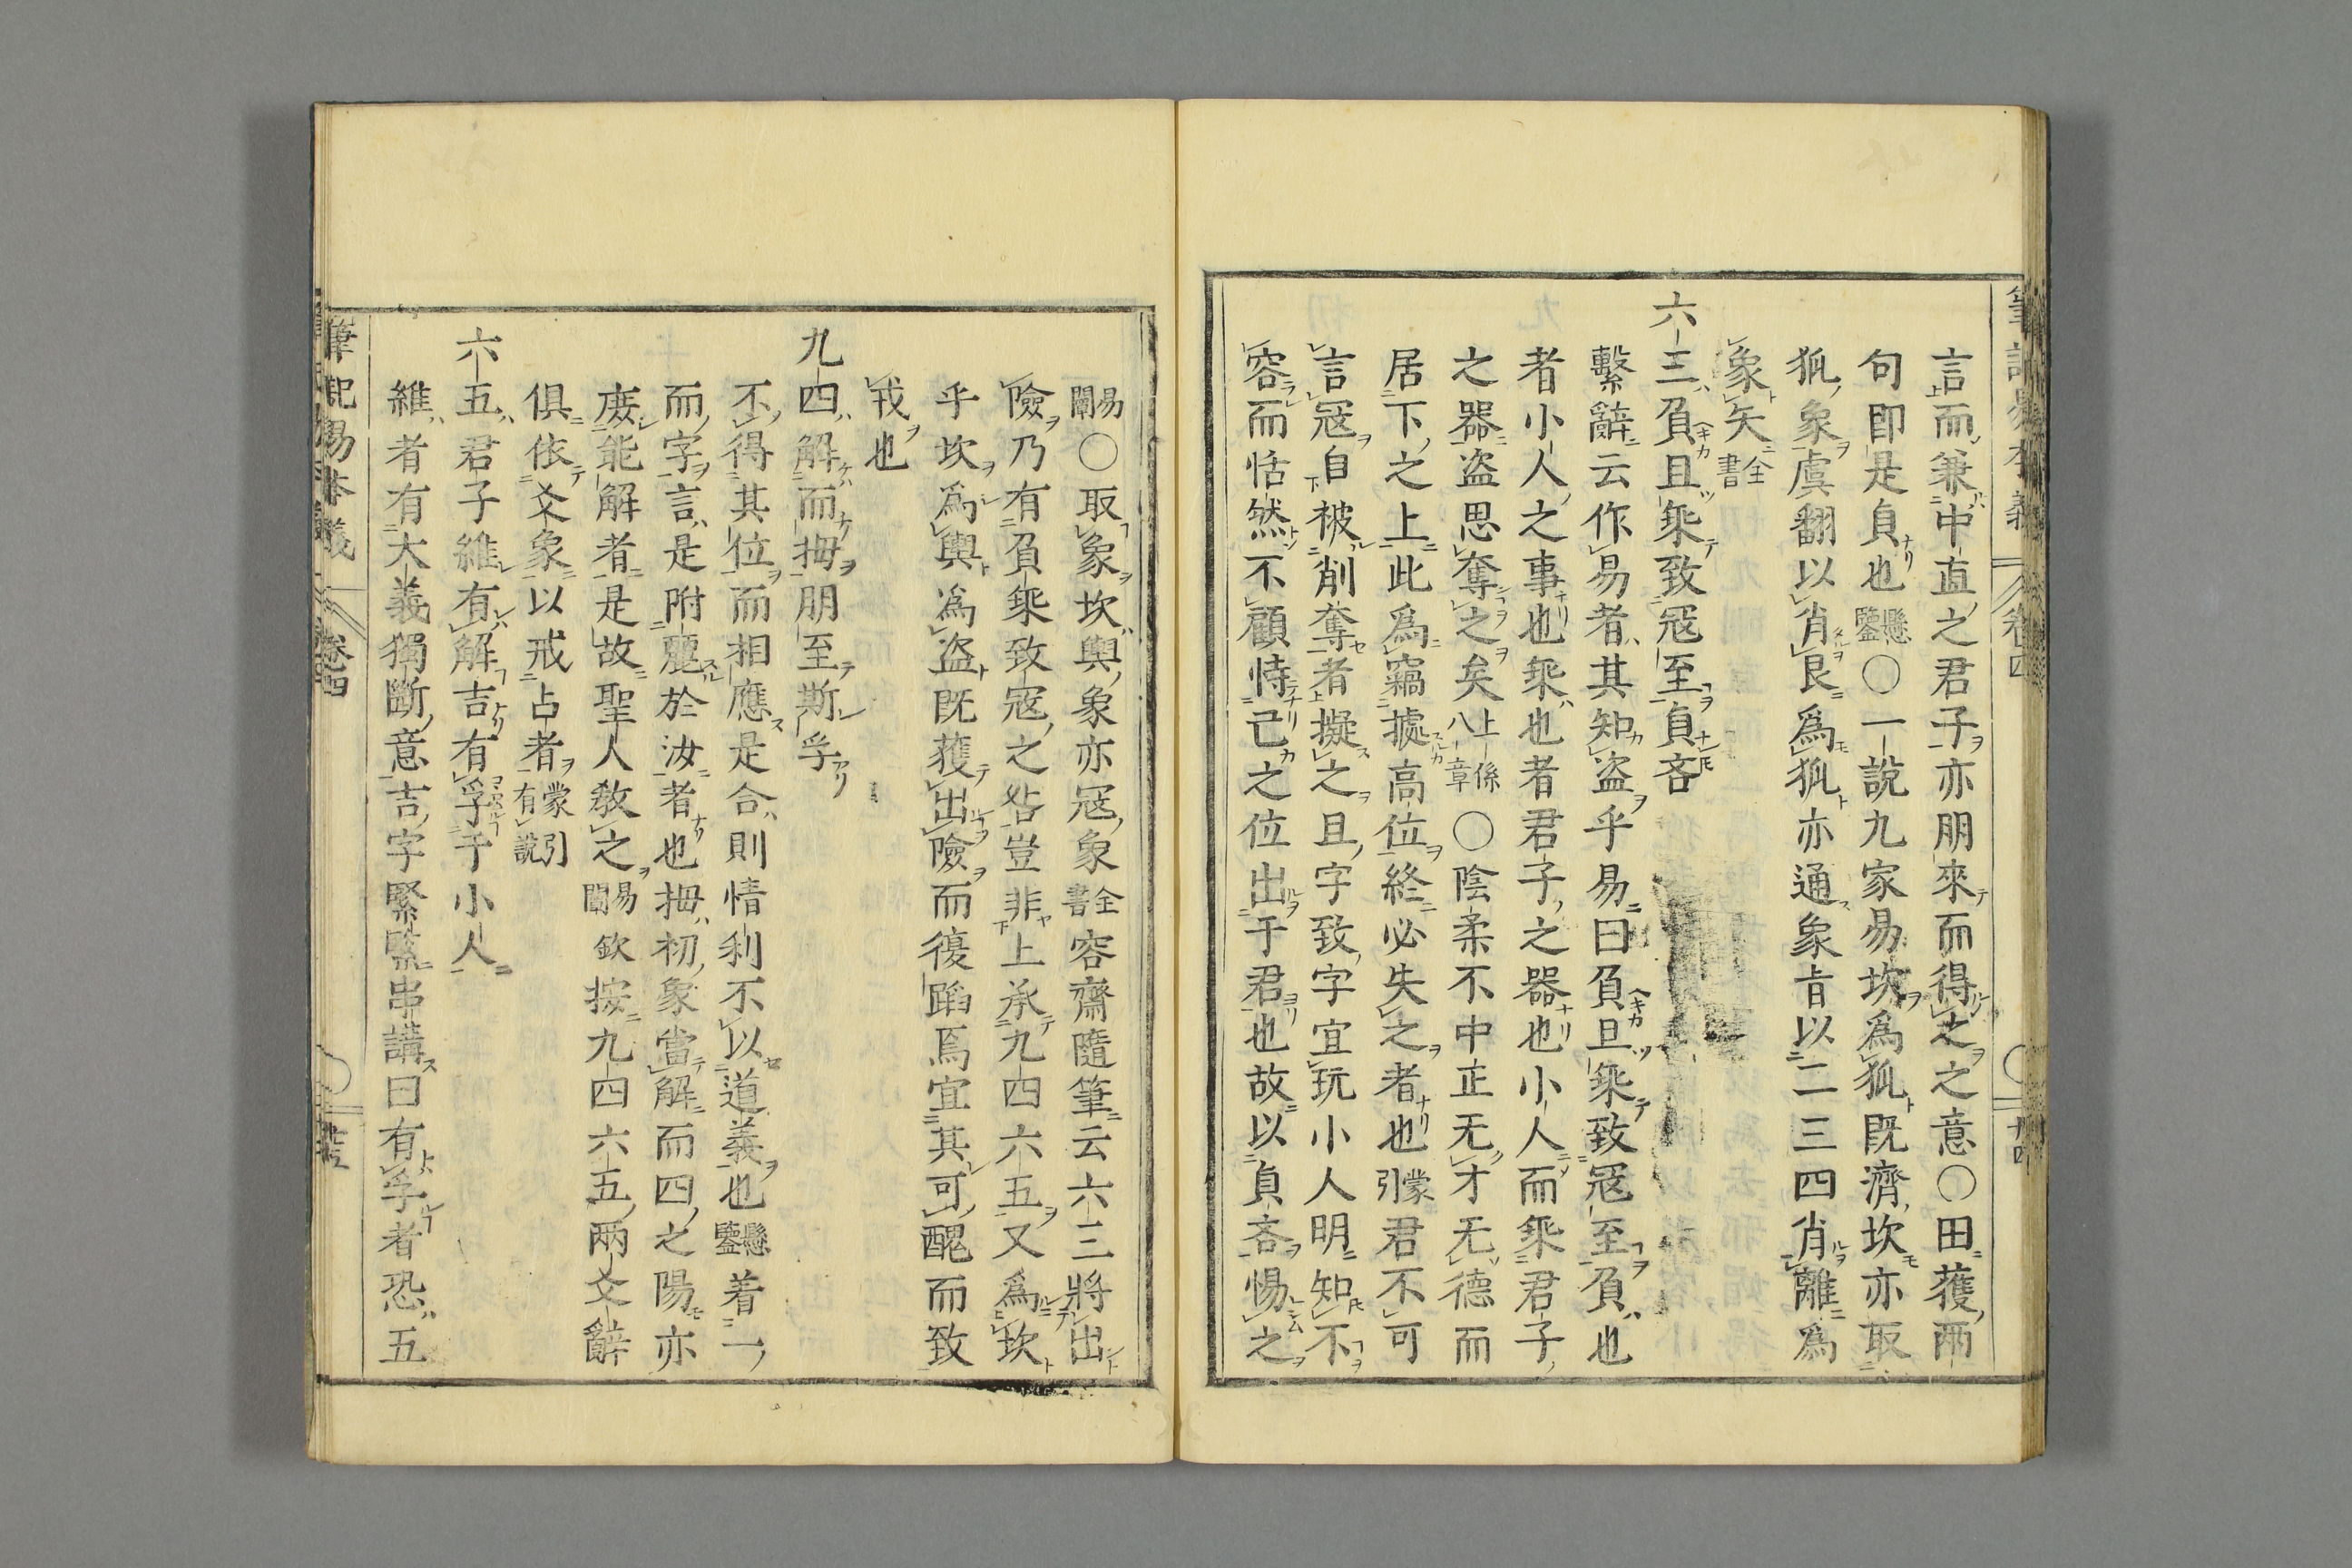 言而兼中直之君子亦朋來而得之之意〇田獲兩
句即是貞也懸鑒〇一說九家易坎爲狐既濟坎亦取
狐象虞翻以肖艮爲狐亦通象旨以二三四肖離爲
象矢全書
六三負且乗致冦至貞吝
繫辭云作易者其知盗乎易曰負且乗致冦至負也
者小人之事也乗也者君子之器也小人而乗君子
之器盗思奪之矣上係八章〇陰柔不中正无才无德而
居下之上此爲竊據高位終必失之者也蒙引君不可
言冦自被削奪者擬之且字致字宜玩小人明知不
容而恬然不顧恃己之位出于君也故以貞吝惕之
易闡〇取象坎輿象亦冦象全書容齋隨筆云六三將出
險乃有負乗致冦之咎豈非上承九四六五又爲坎
乎坎爲輿爲盗既獲出險而復蹈焉宜其可醜而致
戎也
九四解而拇朋至斯孚
不得其位而相應是合則情利不以道義也懸鑒着一
而字言是附麗於汝者也拇初象當解而四之陽亦
庻能解者是故聖人教之易闡欽按九四六五兩爻辭
俱依爻象以戒占者蒙引有說
六五君子維有解吉有孚于小人
維者有大義獨斷意吉字緊緊串講曰有孚者恐五
筆記易本義 卷四